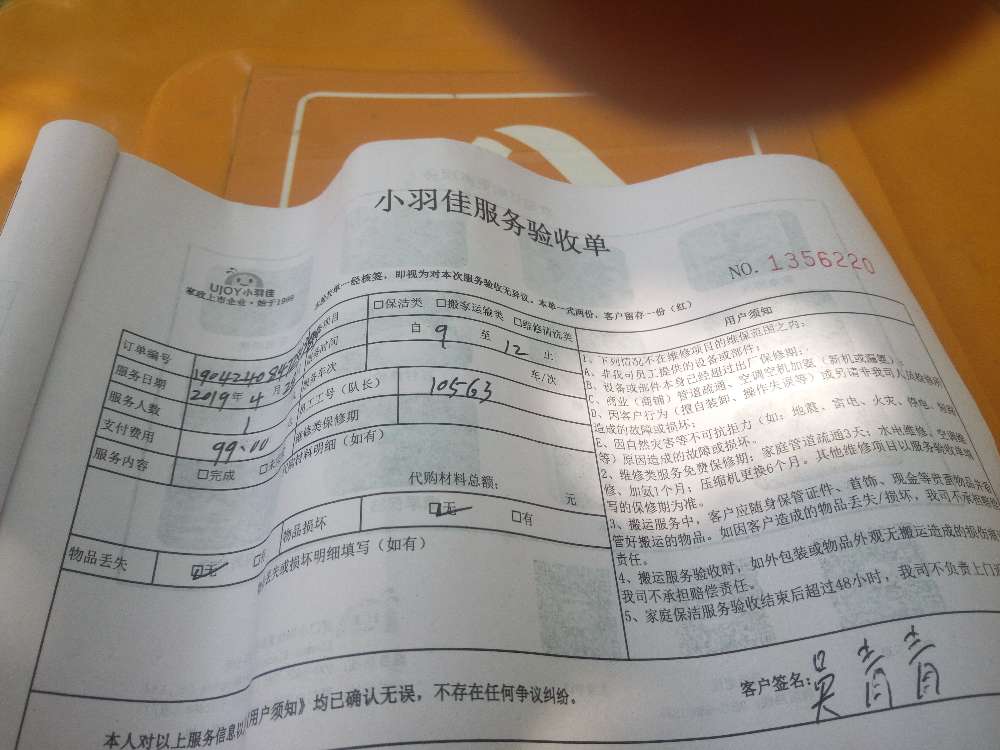 小羽佳服务验收单
NO. 1356220
UJOY小羽佳
家政上市企业·始于1998
单一经核签，即视为对本次服务验收无异议。本单一式两份，客户留存一份（红）
订单编号
项目
□保洁类 □搬家运输类 □维修清洗类
用户须知
服务日期
2019年 4月
时间
自 9 至 12 止
服务人数
1
车次
车/次
支付费用
99.00
员工工号（队长）
10563
服务内容
□完成
维修类保修期
代购材料明细（如有）
代购材料总额： 元
1、下列情况不在维修项目的维保范围之内：
A、非我司员工提供的设备或部件；
B、设备或部件本身已经超过出厂保修期；
C、商业（商铺）管道疏通、空调空机加氨（新机或漏氨）；
D、因客户行为（擅自装卸、操作失误等）或另请非我司人员检修所
造成的故障或损坏；
E、因自然灾害等不可抗拒力（如：地震、雷电、火灾、停电
等）原因造成的故障或损坏。
2、维修类服务免费保修期：家庭管道疏通3天；水电维修、空调维
修、加氨1个月；压缩机更换6个月。其他维修项目以服务验收单填
写的保修期为准。
3、搬运服务中，客户应随身保管证件、首饰、现金等贵重物品并看
管好搬运的物品。如因客户造成的物品丢失/损坏，我司不承担赔偿
责任。
4、搬运服务验收时，如外包装或物品外观无搬运造成的损伤
我司不承担赔偿责任。
5、家庭保洁服务验收结束后超过48小时，我司不负责上门
物品丢失
☑无
□有
物品损坏
☑无 □有
丢失或损坏明细填写（如有）
本人对以上服务信息以及《用户须知》均已确认无误，不存在任何争议纠纷。
客户签名：吴青青